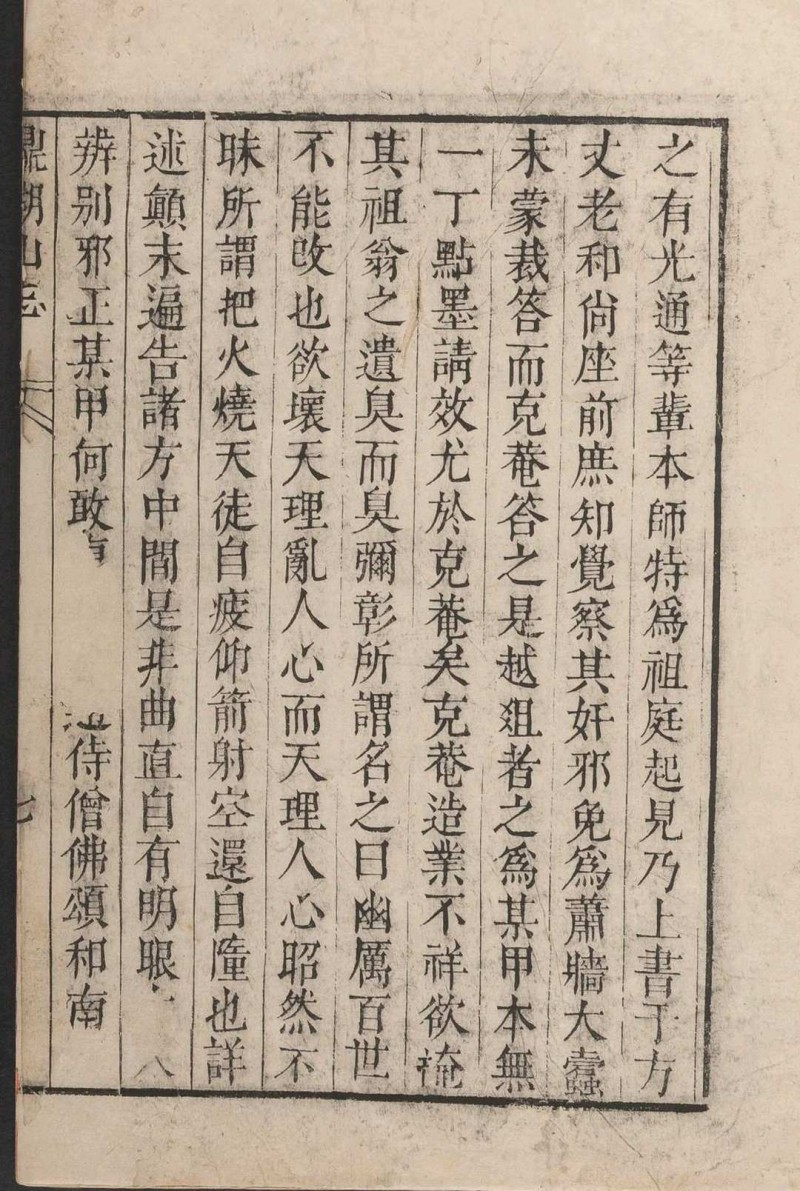 之有光通等輩本師特爲祖庭起見乃上書于方
丈老和尙座前庶知覺察其奸邪免爲蕭牆大蠹
未蒙裁答而克菴答之是越俎者之爲某甲本無
一丁點墨請效尤於克菴矣克菴造業不祥欲掩
其祖翁之遺臭而臭彌彰所謂名之曰幽厲百世
不能改也欲壞天理亂人心而天理人心昭然不
昧所謂把火燒天徒自疲仰箭射空還自墮也詳
述顛末遍告諸方中間是非曲直自有明眼
辨別邪正某甲何敢侍僧佛頌和南
鼎湖山志
七